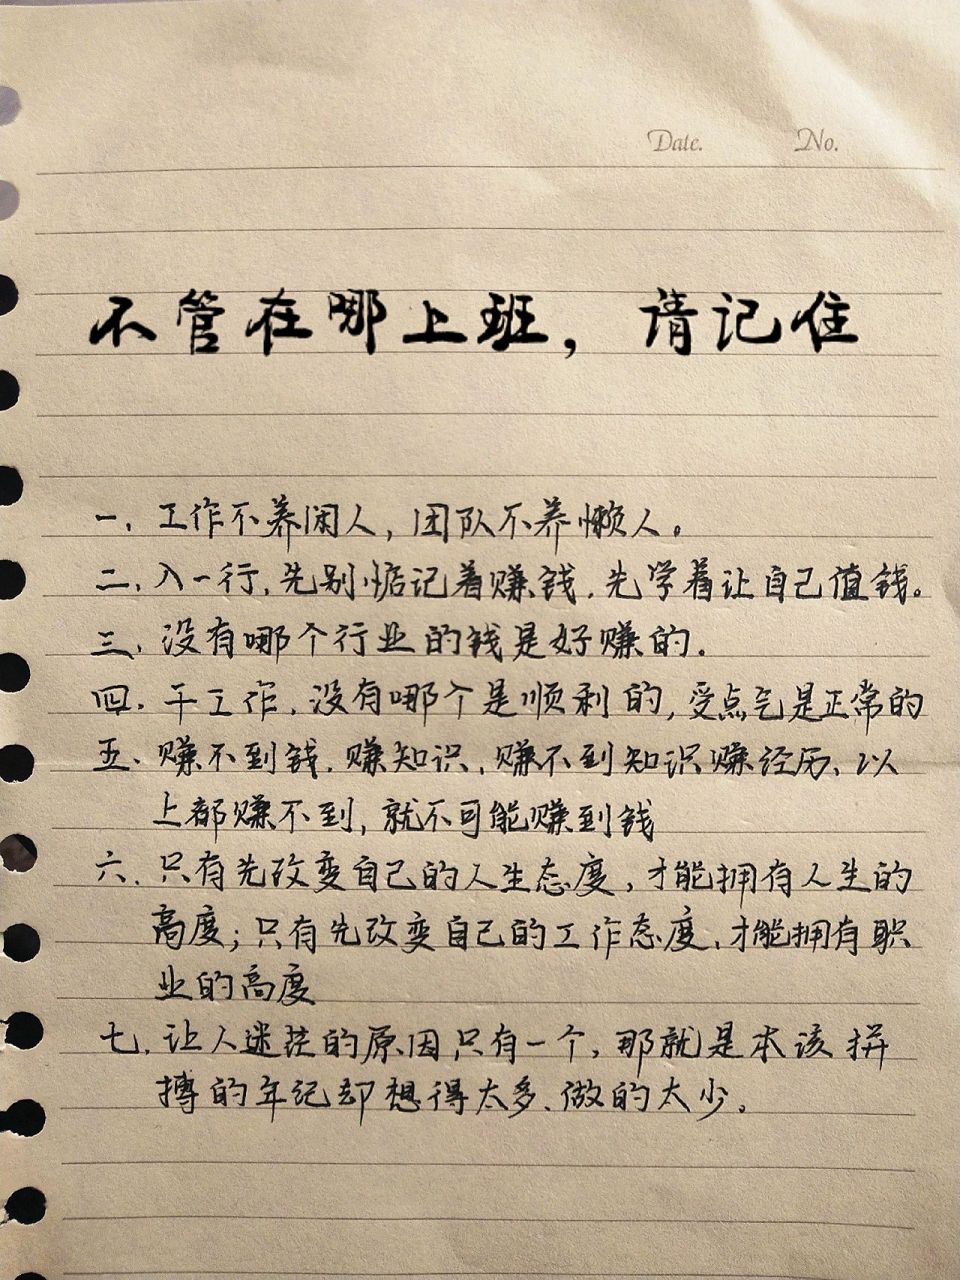 Date. No.
不管在哪上班，请记住
一、工作不养闲人，团队不养懒人。
二、入一行，先别惦记着赚钱，先学着让自己值钱。
三、没有哪个行业的钱是好赚的.
四、干工作，没有哪个是顺利的，受点气是正常的
五、赚不到钱，赚知识，赚不到知识赚经历、以
上都赚不到，就不可能赚到钱
六、只有先改变自己的人生态度，才能拥有人生的
高度；只有先改变自己的工作态度，才能拥有职
业的高度
七、让人迷茫的原因只有一个，那就是本该拼
搏的年纪却想得太多、做的太少。